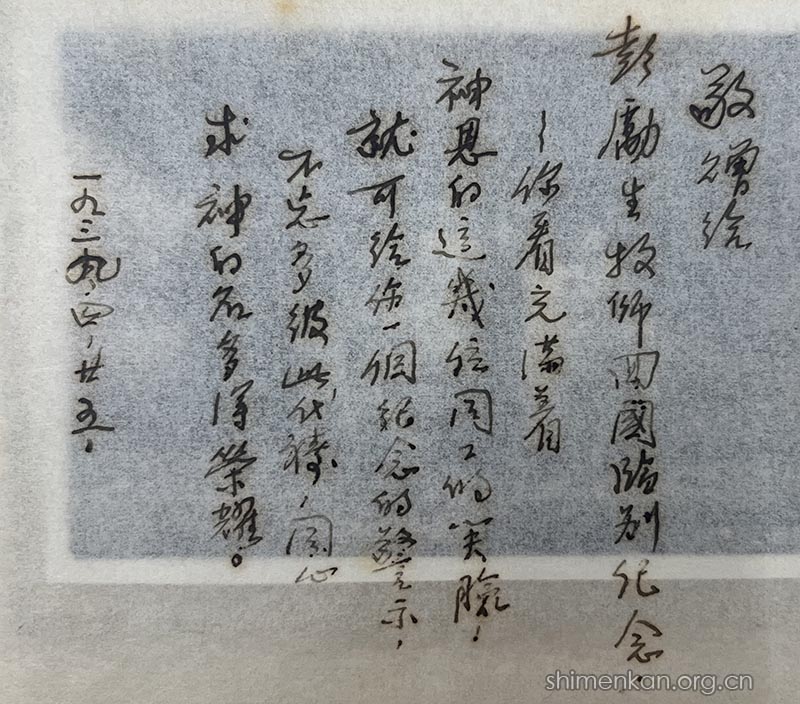 敬贈给
彭勵生牧师回國臨别纪念、
～你看充满着
神恩的這幾位同工的笑臉，
就可给你一個纪念的警示，
不忘多彼此代禱，同心
求神的名多得榮耀。
一九三九、四、廿五、
shimenkan.org.cn